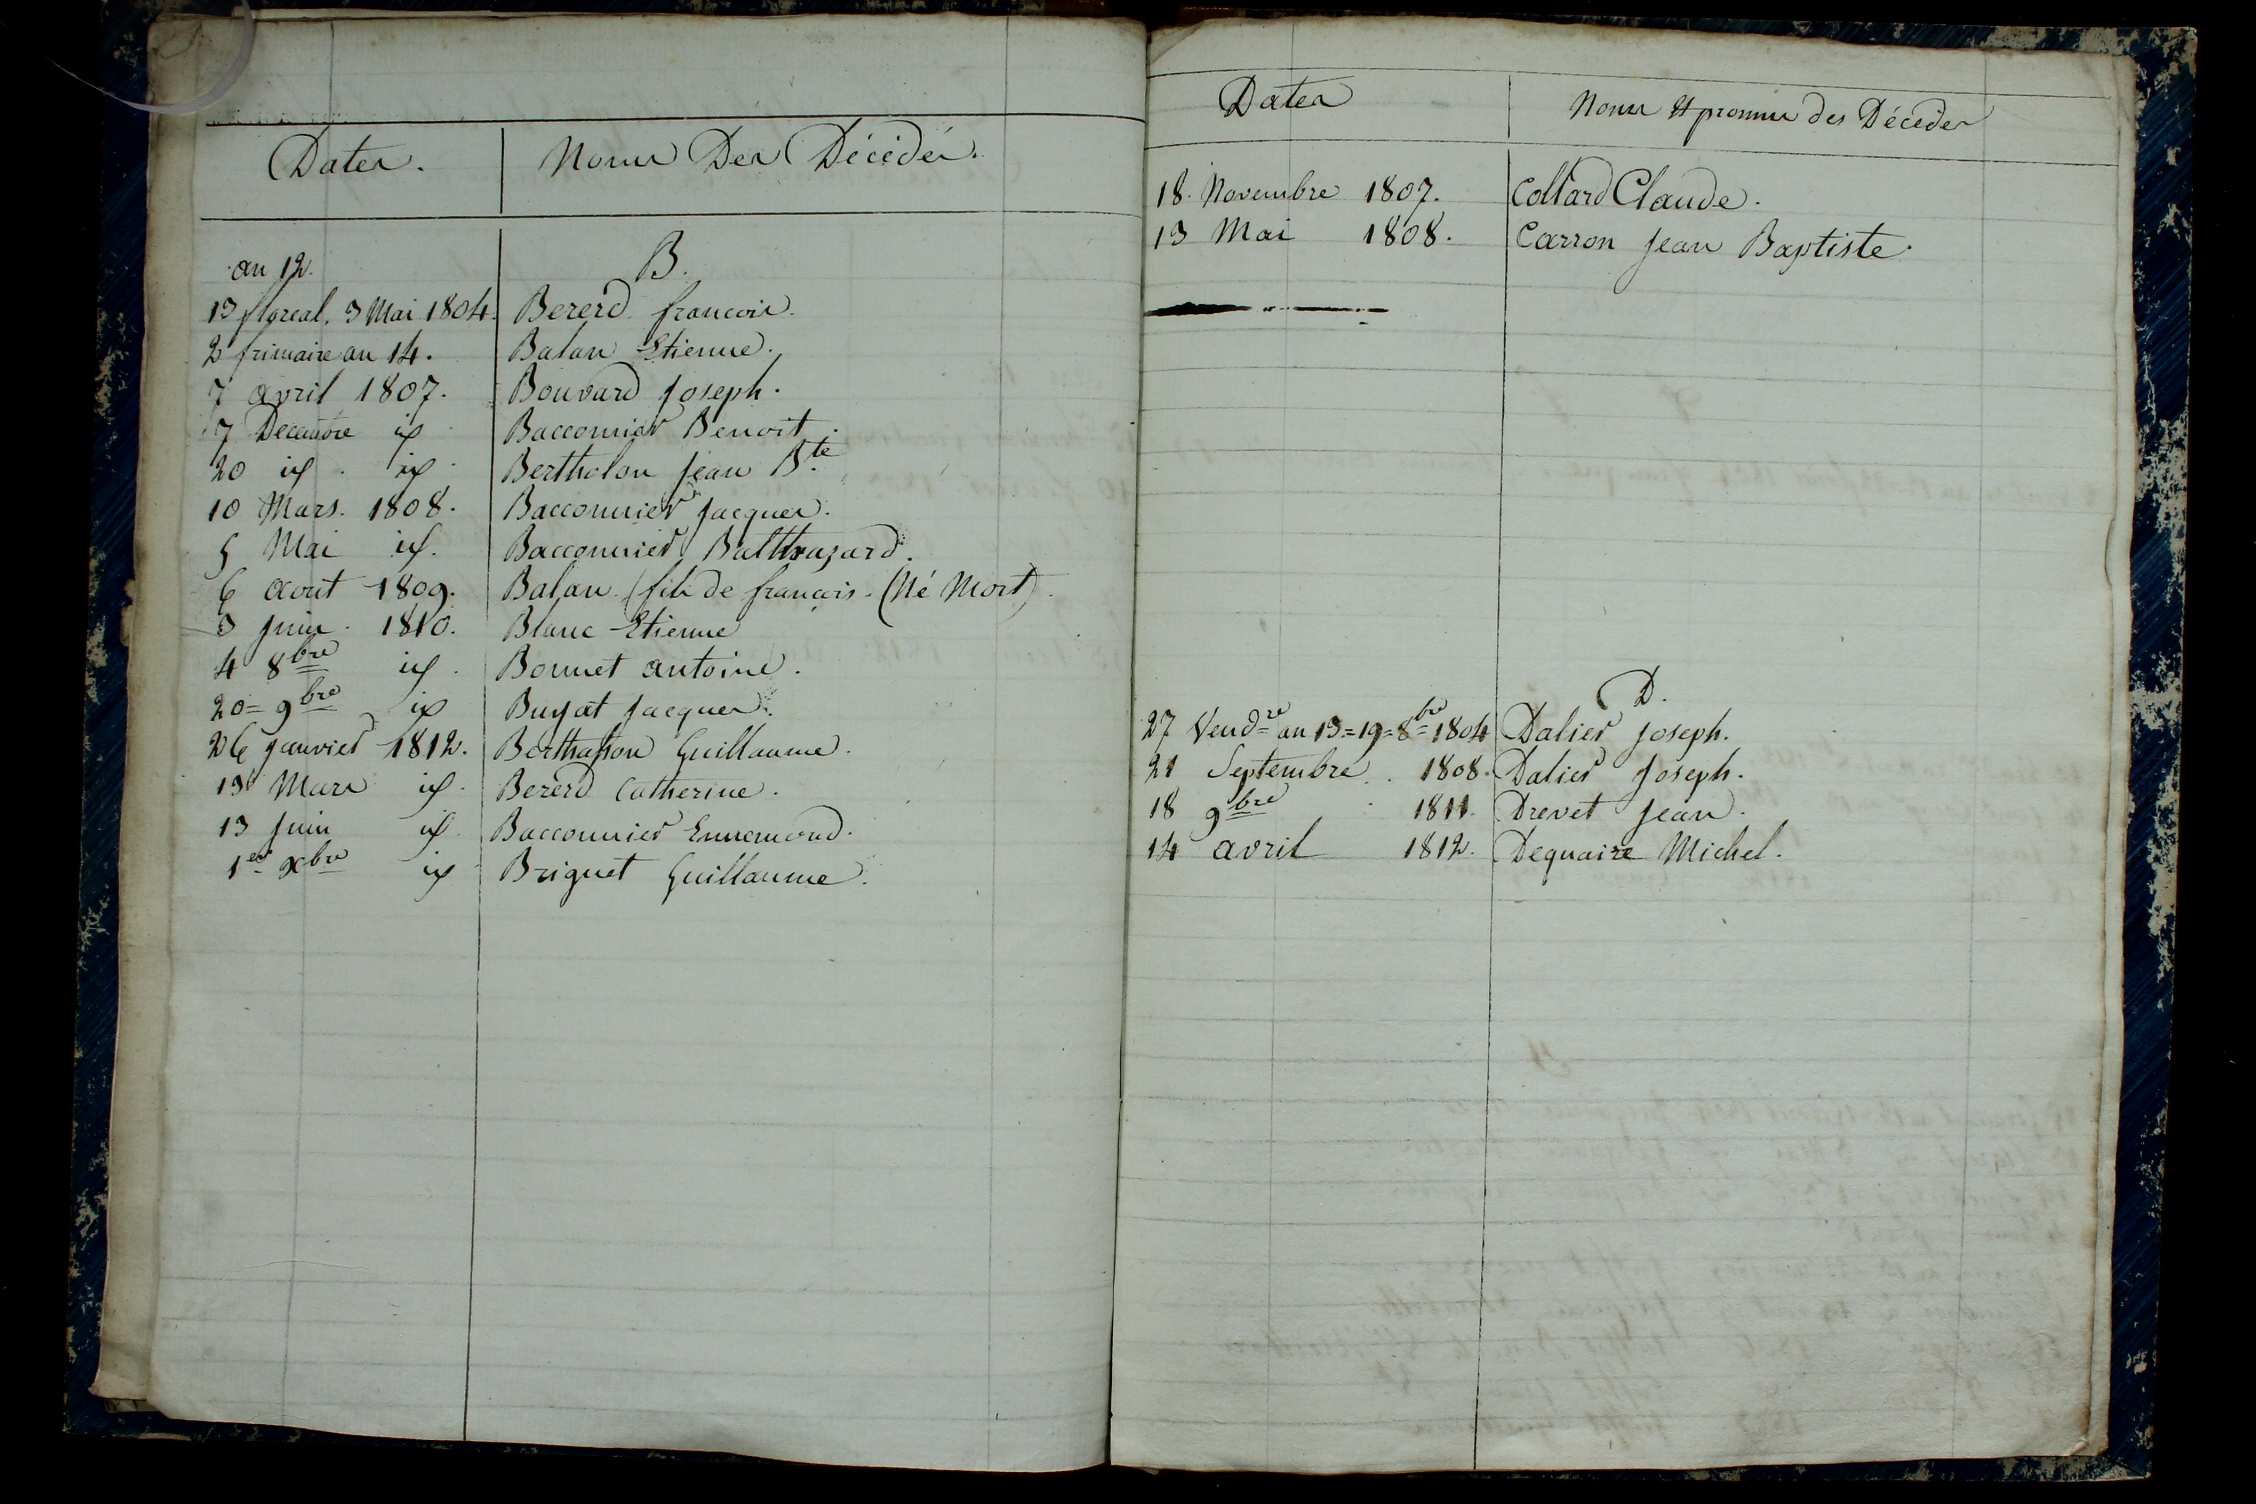 Dates.
Noms Des Décédés.
an 12.
B.
13 floreal. 3 Mai 1804. Bererd francois.
2 frimaire an 14. Balan Etienne.
7 avril 1807. Bouvard Joseph.
7 Decembre id Bacconnier Benoit.
20 id. id. Bertholon Jean Bte
10 Mars. 1808. Bacconnier Jacques.
5 Mai id. Bacconnier Balthazard.
6 aout 1809. Balan (fils de francois. (Né Mort).
3 Juin. 1810. Blanc Etienne
4 8bre id. Bonnet antoine.
20= 9bre id Buyat Jacques.
26 janvier 1812. Berthasson Guillaume.
13 Mars id. Bererd Catherine.
13 Juin id. Bacconnier Ennemond.
1er xbre id Briguet Guillaume.
Dates
Noms Et prenoms des Décédés
18. Novembre 1807. Collard Claude.
13 Mai 1808. Carron Jean Baptiste.
D.
27 Vendre an 13=19=8bre 1804 Dalier Joseph.
21 Septembre. 1808. Dalier Joseph.
18 9bre 1811. Drevet Jean.
14 avril 1812. Dequaire Michel.